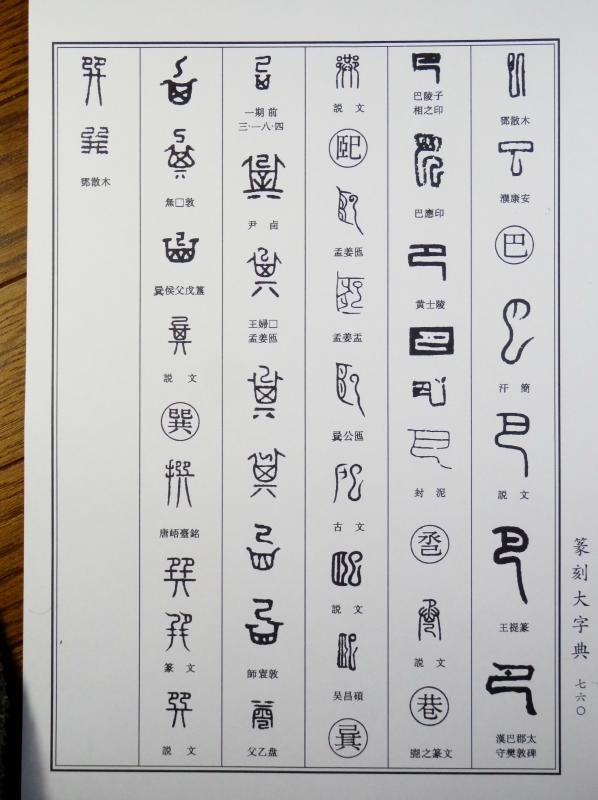 鄧散木
濮康安
巴
汗 簡
説 文
王禔篆
漢巴郡太
守樊敦碑
巴陵子
相之印
巴應印
黄士陵
封 泥
説 文
巷
之篆文
説 文
巸
孟姜匜
孟姜盂
㠱公匜
古 文
説 文
吴昌碩
㠱
一期 前
三·一八·四
尹 卣
王婦□
孟姜匜
師寰敦
父乙盘
無□敦
㠱侯父戊簋
説 文
巽
唐峿臺銘
篆 文
説 文
鄧散木
篆刻大字典
七六〇